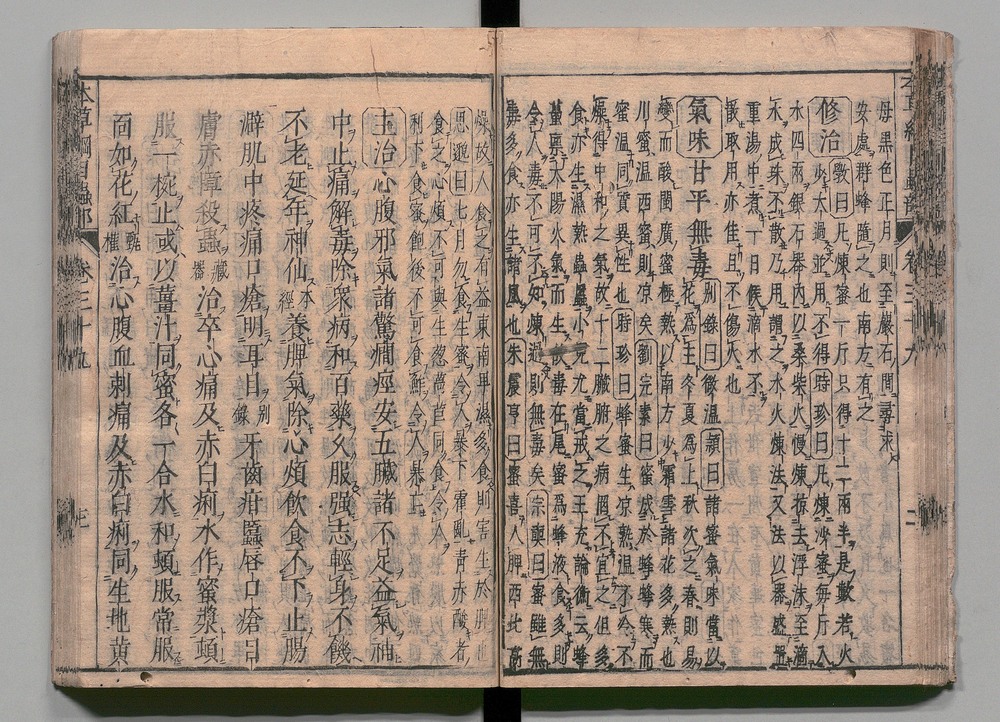 母黑色正月則至巖石間尋求
安處群蜂隨之也南方有之
修治 斅曰凡煉蜜一斤只得十二兩半是數若火
少火過並用不得時珍曰凡煉沙蜜每斤入
水四兩銀石器內以桑柴火慢煉掠去浮沫至滴
水成珠不散乃用謂之水火煉法又法以器盛置
重湯中煮一日候滴水不
散取用亦佳且不傷火也
氣味甘平無毒 別錄曰微溫頴曰諸蜜氣味當以
花爲主冬夏爲上秋次之春則易
變而酸閩廣蜜極熱以南方少霜雪諸花多熱也
川蜜溫西蜜則凉矣劉完素曰蜜成於蜂蜂寒而
蜜溫同質異性也時珍曰蜂蜜生凉熟溫不冷不
燥得中和之氣故十二臟腑之病罔不宜之但多
食亦生濕熱蟲䘌小兒尤當戒之王充論衡云蜂
蠆禀太陽火氣而生故毒在尾蜜爲蜂液食多則
令人毒不可不知煉過則無毒矣宗奭曰蜜雖無
毒多食亦生諸風也朱震亨曰蜜喜入脾西北高
燥故人食之有益東南卑濕多食則害生於脾也
思邈曰七月勿食生蜜令人暴下霍亂青赤酸者
食之心煩不可與生葱萵苣同食令人
利下食蜜飽後不可食鮓令人暴亡
主治心腹邪氣諸驚癎痙安五臟諸不足益氣補
中止痛解毒除衆病和百藥久服强志輕身不饑
不老延年神仙 本經 養脾氣除心煩飲食不下止腸
澼肌中疼痛口瘡明耳目 別錄 牙齒疳䘌唇口瘡目
膚赤障殺蟲 藏器 治卒心痛及赤白痢水作蜜漿頓
服一椀止或以薑汁同蜜各一合水和頓服常服
面如花紅 甄權 治心腹血刺痛及赤白痢同生地黃